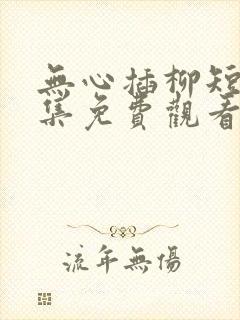 無心插柳短
集免費觀看
流年無傷